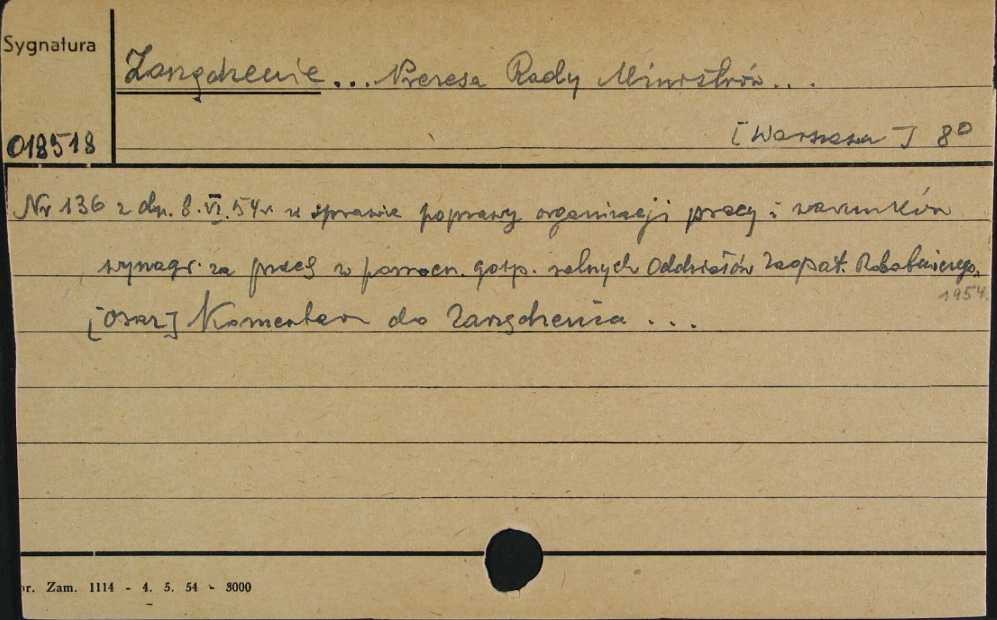 Sygnatura
Zarządzenie... Prezesa Rady Ministrów...
018518
[Warszawa] 8º
Nr 136 z dn. 8.VI.54r w sprawie poprawy organizacji pracy i warunków
wynagr. za pracę w pomocn. gosp. rolnych Oddziałów Zaopat. Robotniczego.
1954.
[oraz] Komentarz do Zarządzenia ...
r. Zam. 1114 - 4. 5. 54 - 3000